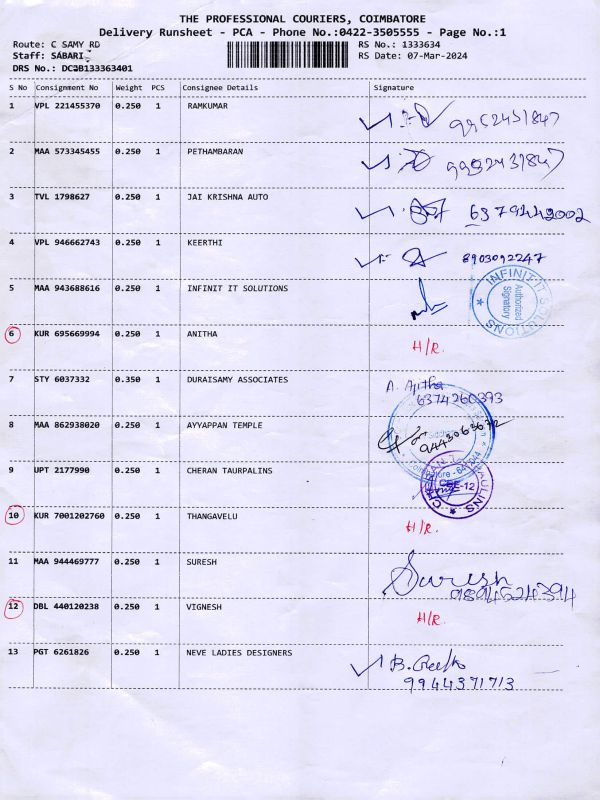 THE PROFESSIONAL COURIERS, COIMBATORE
Delivery Runsheet - PCA - Phone No.:0422-3505555 - Page No.:1
Route: C SAMY RD RS No.: 1333634
Staff: SABARI RS Date: 07-Mar-2024
DRS No.: DC2B133363401
S No Consignment No Weight PCS Consignee Details Signature
1 VPL 221455370 0.250 1 RAMKUMAR 9952451847
2 MAA 573345455 0.250 1 PETHAMBARAN 9952431847
3 TVL 1798627 0.250 1 JAI KRISHNA AUTO 6379442002
4 VPL 946662743 0.250 1 KEERTHI 8903092247
5 MAA 943688616 0.250 1 INFINIT IT SOLUTIONS
INFINIT IT SOLUTIONS
Authorized
Signatory
6 KUR 695669994 0.250 1 ANITHA H/R.
7 STY 6037332 0.350 1 DURAISAMY ASSOCIATES A. Ajitha
6374260393
8 MAA 862938020 0.250 1 AYYAPPAN TEMPLE 9443063672
9 UPT 2177990 0.250 1 CHERAN TAURPALINS
CBE-12
10 KUR 7001202760 0.250 1 THANGAVELU H/R.
11 MAA 944469777 0.250 1 SURESH Suresh
12 DBL 440120238 0.250 1 VIGNESH H/R.
13 PGT 6261826 0.250 1 NEVE LADIES DESIGNERS B. Geetha
9944371713